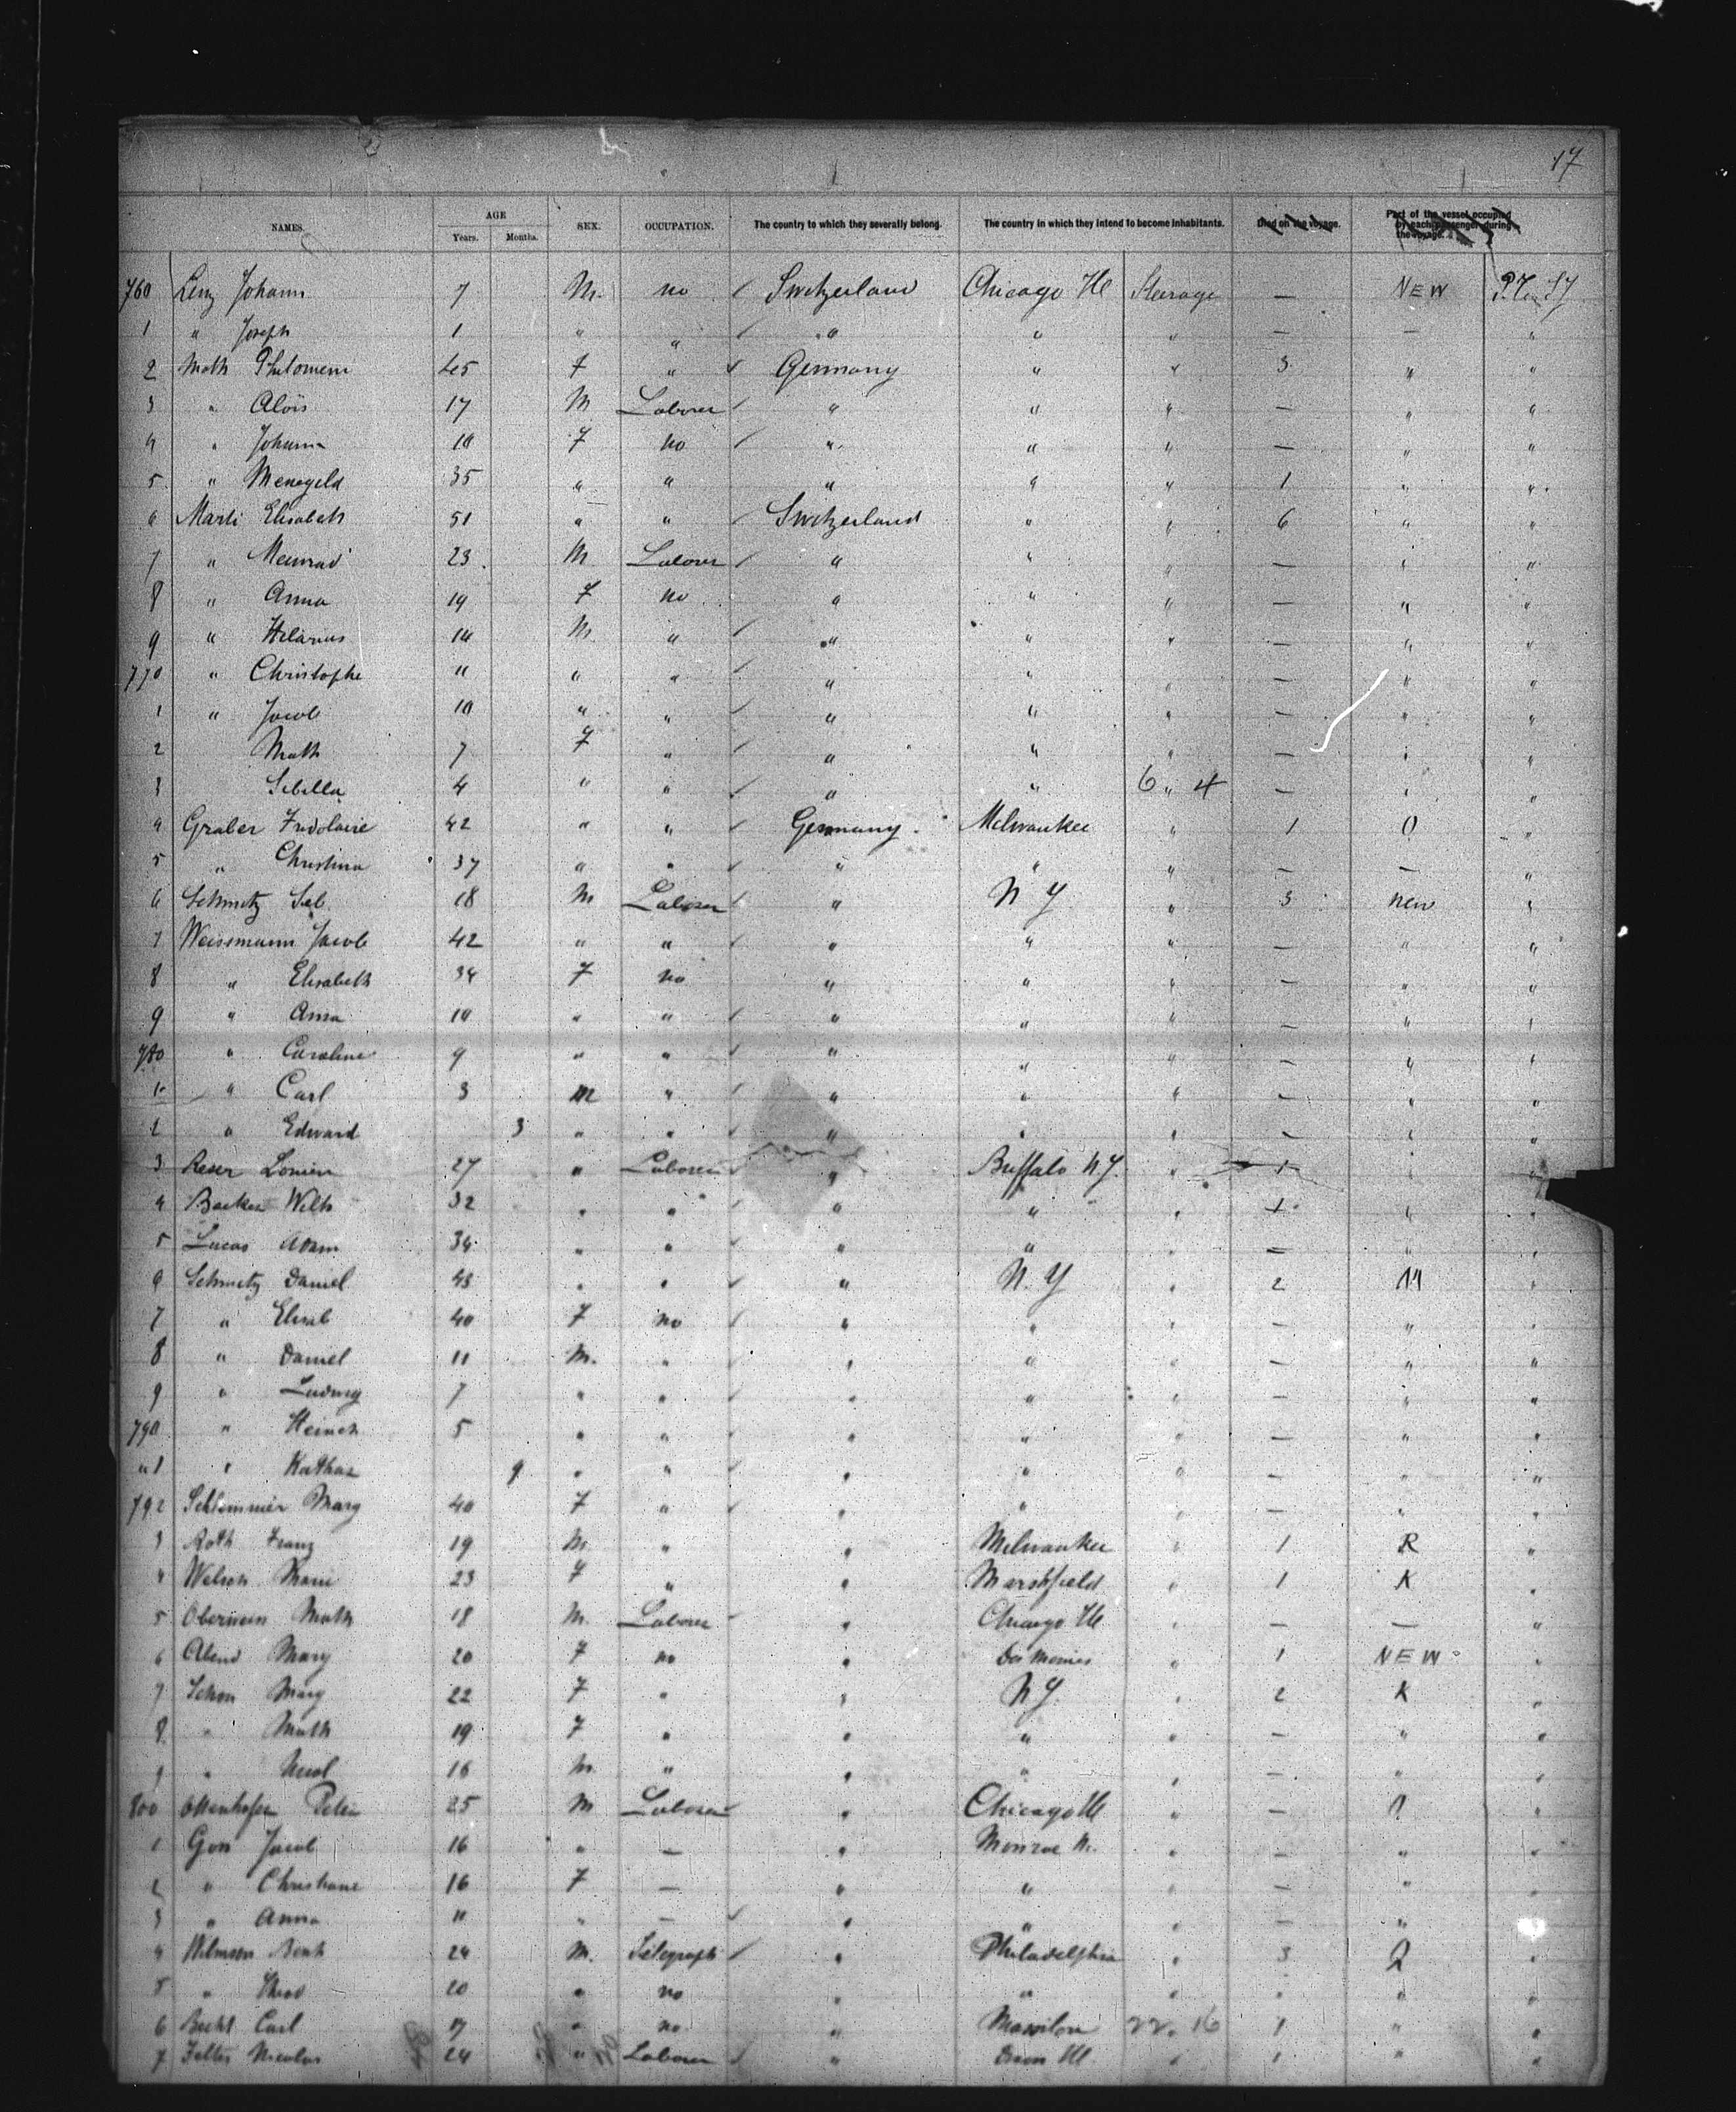 17
NAMES. AGE Years. Months. SEX. OCCUPATION. The country to which they severally belong. The country in which they intend to become inhabitants. Died on the voyage. Part of the vessel occupied by each passenger during the voyage.
760 Lenz Johann 7 M. no ✓ Switzerland Chicago Ill Steerage — NEW
1 " Joseph 1 " " ✓ " " " — — "
2 Moth Philomen 45 F " ✓ Germany " " 3 " "
3 " Alois 17 M Laborer ✓ " " " — " "
4 " Johanna 10 F no ✓ " " " — " "
5 " Menegeld 35 " " " " " 1 " "
6 Marti Elisabeth 51 " " ✓ Switzerland " " 6 " "
7 " Meinrad 23 M Laborer ✓ " " " — " "
8 " Anna 19 F no " " " — " "
9 " Hilarius 14 M. " ✓ " " " — " "
770 " Christophe 11 " " ✓ " " " — " "
1 " Jacob 10 " " ✓ " " " — " "
2 Math 7 F " ✓ " " " — " "
3 Sibilla 4 " " ✓ " " 6 " 4 — " "
4 Graber Fridolaire 42 " " ✓ Germany Milwaukee " 1 O "
5 " Christina 37 " " ✓ " " " — — "
6 Schmitz Seb. 18 M Laborer ✓ " N Y " 3 new "
7 Weissmann Jacob 42 " " ✓ " " " — " "
8 " Elisabeth 34 F no " " " — " "
9 " Anna 10 " " ✓ " " " — " "
780 " Caroline 9 " " ✓ " " " — " "
1 " Carl 3 M " ✓ " " " — " "
2 " Edward 3 " " ✓ " " " — " "
3 Reser 27 " Laborer ✓ " Buffalo N Y. " 1 " "
4 Backer Wilh 32 " " ✓ " " " 1 " "
5 Lucas Adam 34 " " " " " — " "
6 Schmitz Daniel 43 " " ✓ " N. Y " 2 "
7 " Elisab 40 F no ✓ " " " — " "
8 " Daniel 11 M. " ✓ " " " — " "
9 " Ludwig 7 " " ✓ " " " — " "
790 " Heinch 5 " " ✓ " " " — " "
"1 " Kathar 9 " " ✓ " " " — " "
792 Schlemmer Marg 40 F " ✓ " " " — " "
3 Roth Franz 19 M. " " Milwaukee " 1 R "
4 Marie 23 F " " Marshfield " 1 K "
5 Math 18 M. Laborer ✓ " Chicago Ill " — — "
6 Abend Mary 20 F no " Des Moines " 1 NEW "
7 Schon Marg 22 F " " N Y. " 2 K "
8 " Math 19 F " " " " — " "
9 " Nicol 16 M. " " " " — " "
800 Ottenhofer Peter 25 M Laborer ✓ " Chicago Ill " — "
1 Gon Jacob 16 " — " Monroe " — " "
2 " Christiane 16 F — " " " — " "
3 " Anna 11 " — ✓ " " " — " "
4 24 M. Telegraph ✓ " Philadelphia " 3 "
5 " 20 " no " " " " " "
6 Becht Carl 17 " no " Massilon 22. 16 1 " "
7 Felten Nicolas 24 " Laborer ✓ " Ill. " 1 " "